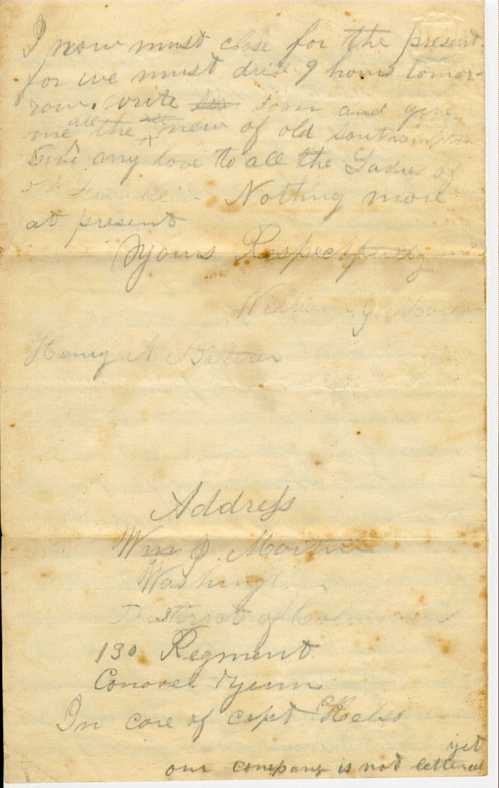 I now must close for the present
for we must drill 9 hours tomor-
row. write soon and give
me all the news of old southampton
Give my love to all the Ladies of
Nothing more
at present
Yours Respectfully
William J.
Henry A
Address
Wm J. Martin
Washington
District of Columbia
130 Regment
Conorel
In care of capt
yet
our company is not lettered